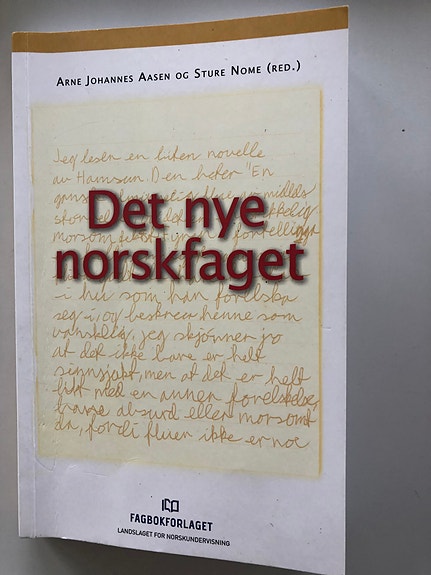 ARNE JOHANNES AASEN OG STURE NOME (RED.)
Jeg lesen en liten novelle
av Hamsun. Den heter "En
Det nye
norskfaget
i hu som han forelska
seg i, og beskrev henne som
vanskelig, jeg skjønner jo
at det ikke bare er helt
sinnsjukt, men at det er helt
litt med en annen forelskelse,
bare absurd eller morsomt
da, fordi fluen ikke er noe
FAGBOKFORLAGET
LANDSLAGET FOR NORSKUNDERVISNING